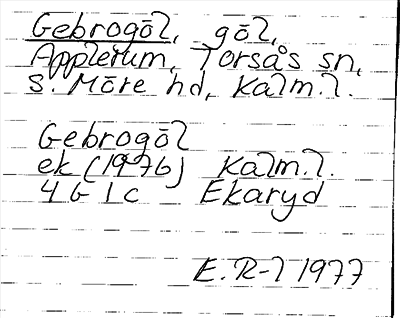 Gebrogöl, göl,
Applerum, Torsås sn,
S. Möre hd, Kalm.l.
Gebrogöl
ek (1976) Kalm.l.
4 G 1 c Ekaryd
E. R-l 1977